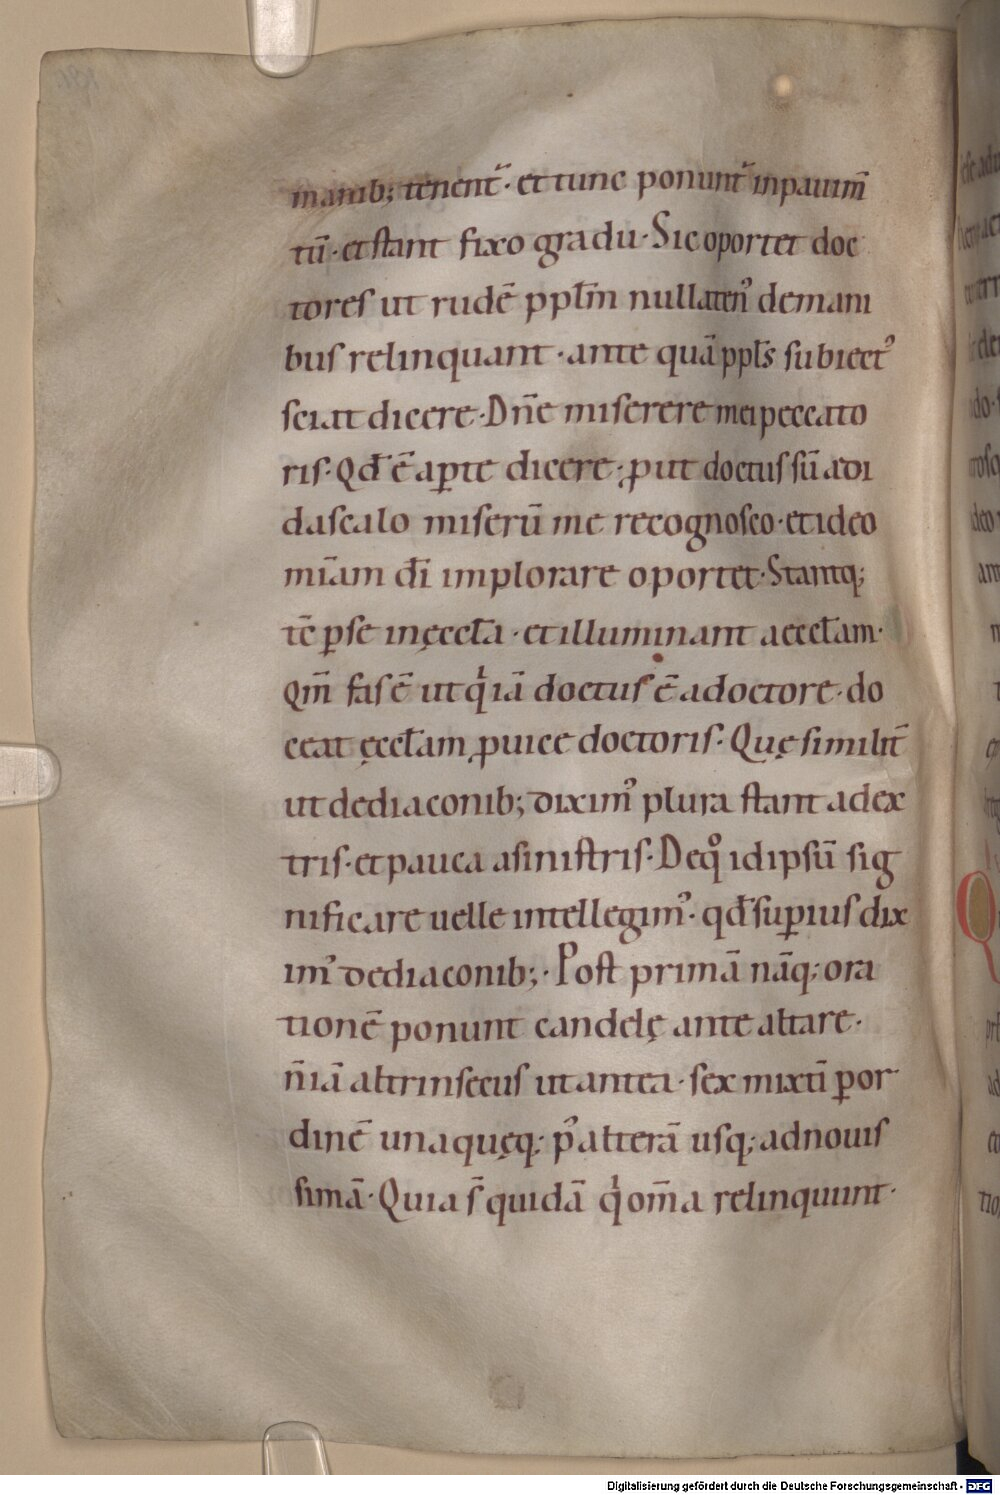 manib; tenent᷑· et tunc ponunt᷑ inpauim̅
tū· et stant fixo gradu· Sic oportet doc
tores ut rudē ppl̅m nullaten᾿ demani
bus relinquant· ante quā ppl̅s subiect᾿
sciat dicere· Dn̅e miserere mei peccato
ris· Qd̅ ē ap̲te dicere; ꝓut doctus sū a di
dascalo miserū me recognosco· et ideo
mi̅am di̅ implorare oportet· Stantq;
tē p̲se inęccl̅a· et illuminant aeccl̅am·
Qm̅ fas ē ut qͥ iā doctus ē adoctore· do
ceat ęccl̅am ꝓuice doctoris· Quę similit̅
ut dediaconib; dixim᾿ plura stant adex
tris· et pauca asinistris· Deq̊ idipsū sig
nificare uelle intellegim᾿· qd̅ sup̲ius dix
im᾿ dediaconib;· Post primā nāq; ora
tionē ponunt candelę ante altare·
n̅ iā altrinsecus ut antea· sex mixti p̲ or
dinē unaquęq; p᾿ alterā usq; adnouis
simā· Quia s̅ quidā qͥ om̅a relinquunt·
Digitalisierung gefördert durch die Deutsche Forschungsgemeinschaft - DFG